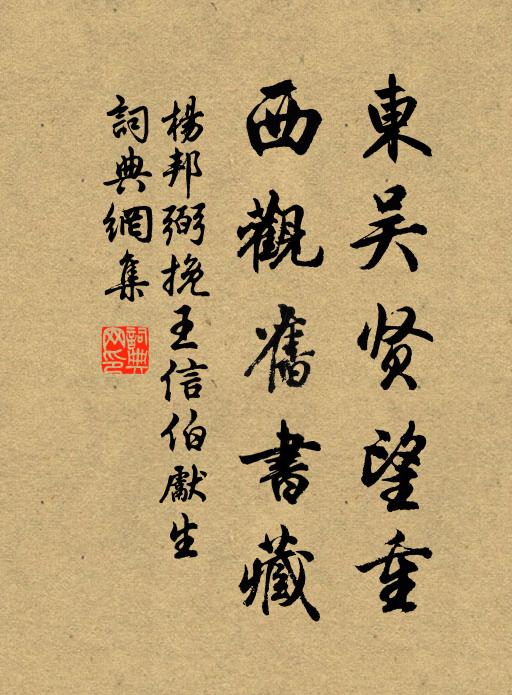 東吴贤望重
西觀舊書藏
楊邦弼挽王信伯獻生
詞典網集
詞典网印